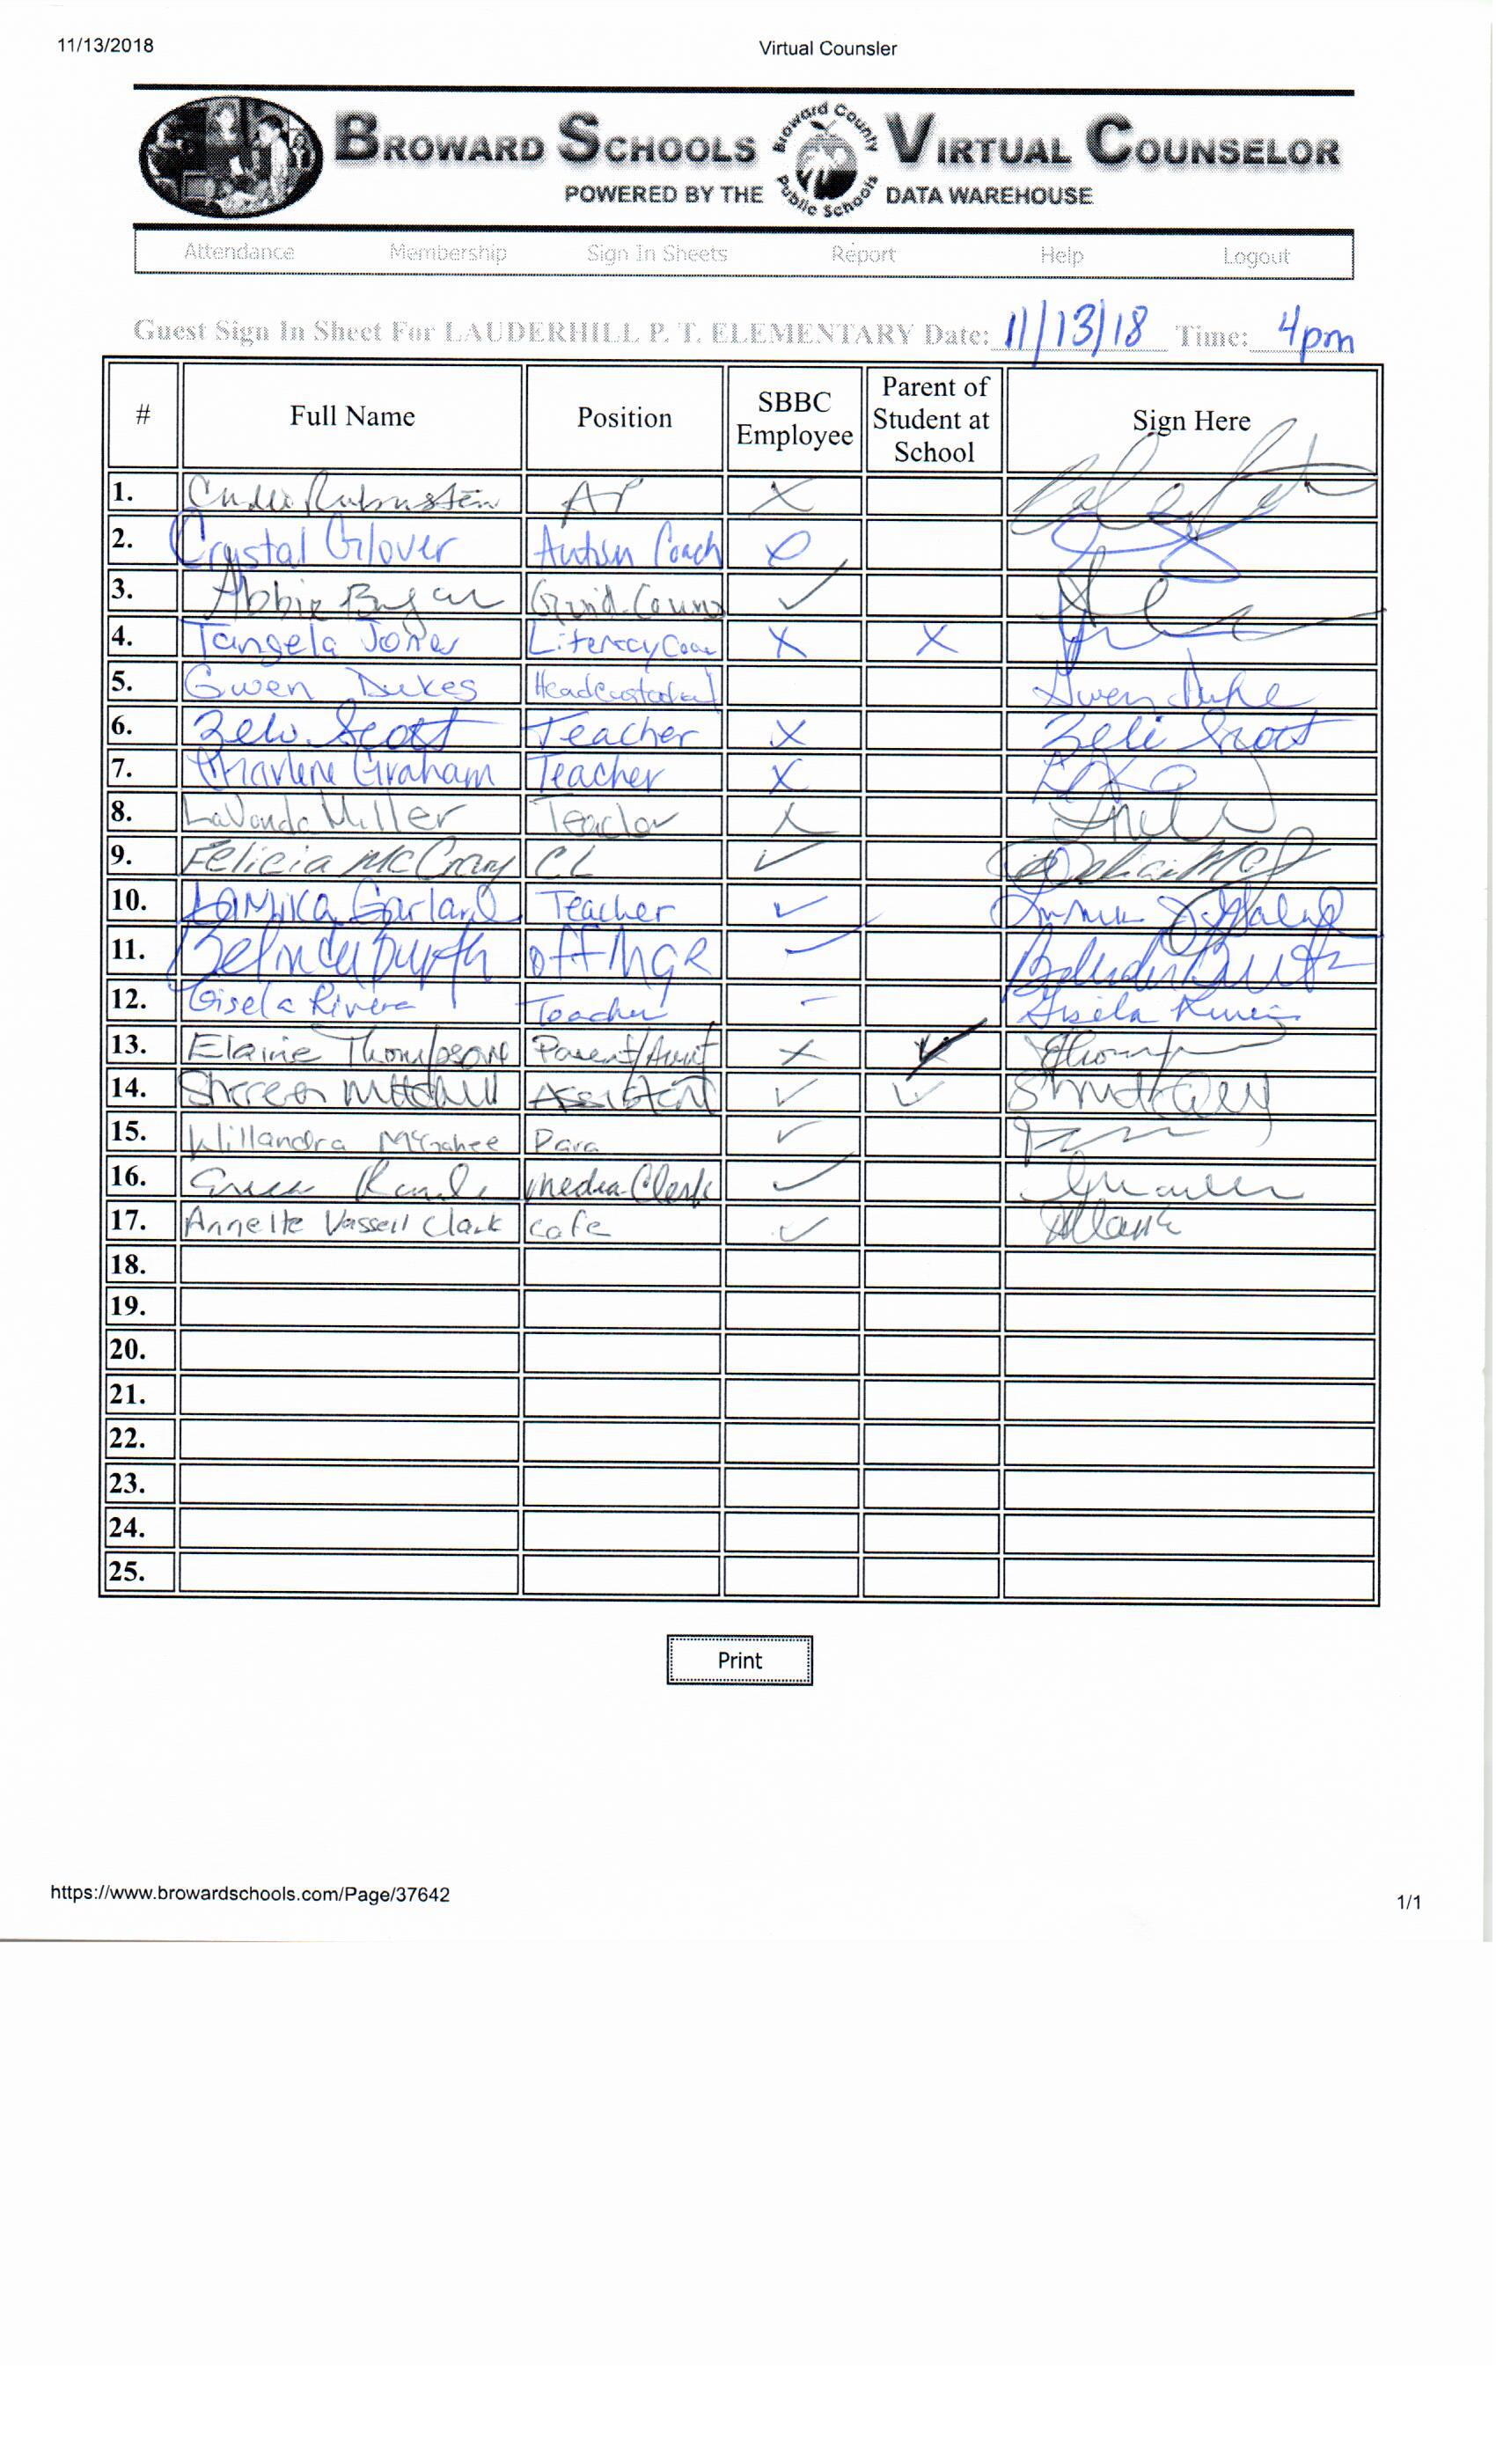 11/13/2018 Virtual Counsler
BROWARD SCHOOLS Broward County Public Schools VIRTUAL COUNSELOR
POWERED BY THE DATA WAREHOUSE
Attendance Membership Sign In Sheets Report Help Logout
Guest Sign In Sheet For LAUDERHILL P. T. ELEMENTARY Date: 11/13/18 Time: 4pm
# Full Name Position SBBC Employee Parent of Student at School Sign Here
1. Rubinstein AP X
2. Crystal Glover Autism Coach X
3. Abbie Guid. Couns ✓
4. Tangela Jones Literacy Coac X X
5. Gwen Dukes Head Custodial Gwen Duke
6. Scott Teacher X Scott
7. Charlene Graham Teacher X
8. LaVonda Miller Teacher X
9. Felicia McCrary CL ✓
10. LaMika Garland Teacher ✓
11. Belinda Off MGR
12. Gisela Rivera Teacher Gisela Rivera
13. Elaine Thompson Parent/Aunt X ✓ EThomp
14. Shereen Mitchell Assistant ✓ ✓
15. Willandra McGahee Para ✓
16. Media Clerk ✓
17. Annette Vassell Clark cafe ✓
18.
19.
20.
21.
22.
23.
24.
25.
Print
https://www.browardschools.com/Page/37642 1/1